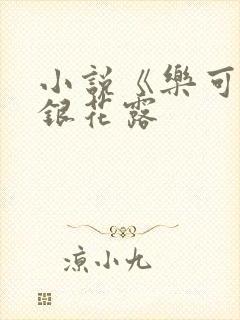 小說《樂可
銀花露
涼小九